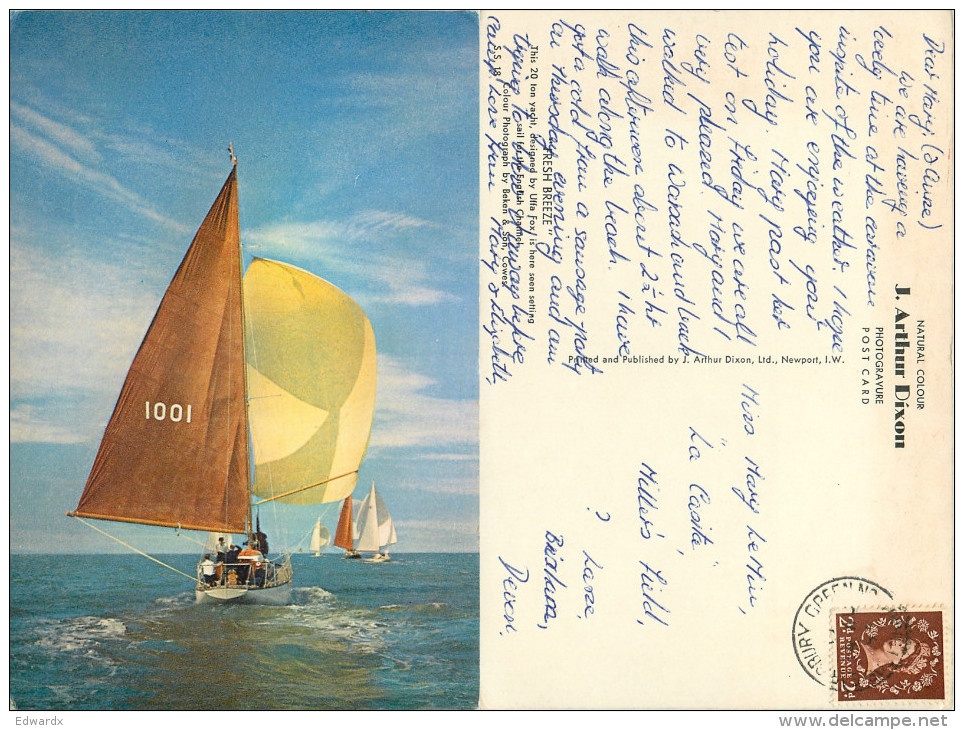 1001
NATURAL COLOUR
J. Arthur Dixon
PHOTOGRAVURE
POST CARD
Dear Mary (& Anne)
We are having a
lovely time at the caravan
inspite of the weather. I hope
you are enjoying your
holiday. Mary past her
test on Friday we are all
very pleased. Mary and I
walked to Warsash and back
this afternoon about 2½ hr
walk along the beach. I have
got a cold from a sausage party
on Thursday evening and am
trying to before
love from Mary & Elizabeth,
"FRESH BREEZE"
This 20 ton yacht, designed by Uffa Fox, is here seen setting
sail for the English Channel.
Colour Photograph by Beken & Son, Cowes.
S.S. 18
Printed and Published by J. Arthur Dixon, Ltd., Newport, I.W.
Miss Mary
"La Casita",
Hillers Field,
? Lane.
Brixham,
Devon.
GREEN
POSTAGE
REVENUE
2½d 2½d
Edwardx